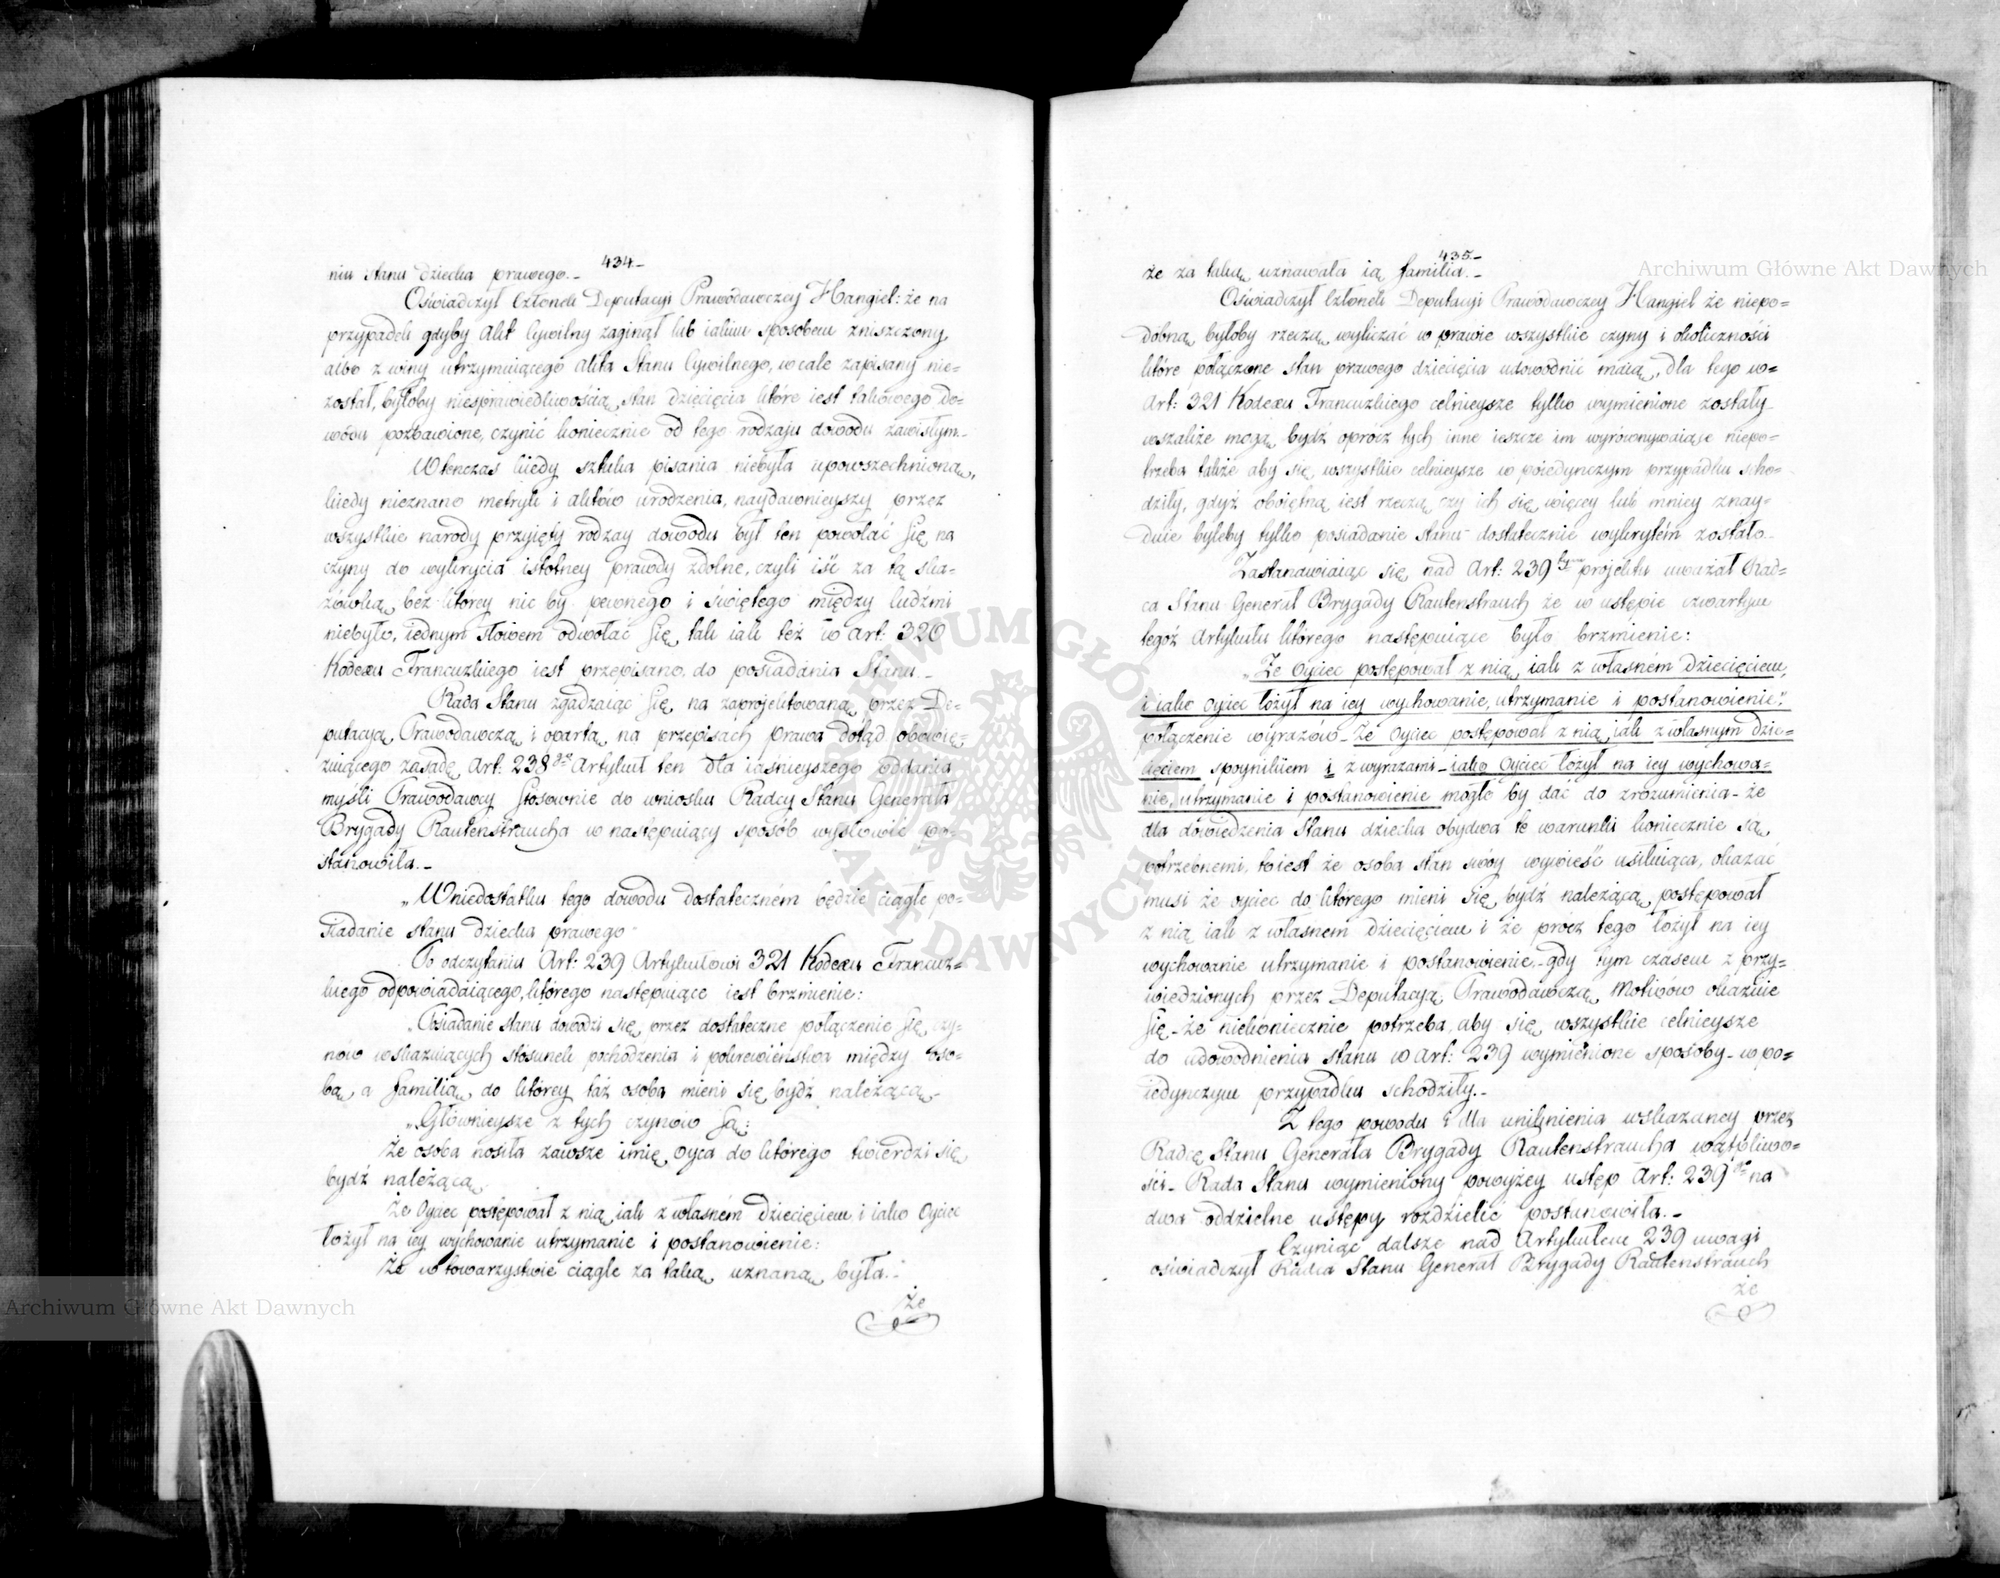 434.-
niu stanu dziecka prawego.-
Oświadczył Członek Deputacyi Prawodawczey Hangiel: że na
przypadek gdyby Akt Cywilny zaginął lub iakim sposobem zniszczony,
albo z winy utrzymuiącego Akta Stanu Cywilnego, wcale zapisany nie=
został, byłoby niesprawiedliwością, stan dziecięcia które iest takowego do=
wodu pozbawione, czynić koniecznie od tego rodzaju dowodu zawisłym.-
Wtenczas kiedy sztuka pisania niebyła upowszechnioną,
kiedy nieznano metryk i aktów urodzenia, naydawnieyszy przez
wszystkie narody przyięty rodzay dowodu był ten powołać się na
czyny do wykrycia istotney prawdy zdolne, czyli iść za tą ska=
zówką, bez którey nic by pewnego i świętego między ludźmi
niebyło, iednym słowem odwołać się, tak iak też w Art: 320
Kodexu Francuzkiego iest przepisano, do posiadania Stanu.-
Rada Stanu zgadzaiąc się, na zaprojektowaną przez De=
putacyą Prawodawczą i opartą na przepisach prawa dotąd obowię=
zuiącego zasadę Art: 238go Artykuł ten dla iaśnieyszego oddania
myśli Prawodawcy stosownie do wniosku Radcy Stanu Generała
Brygady Rautenstraucha w następuiący sposób wysłowić po=
stanowiła.-
„W niedostatku tego dowodu dostateczném będzie ciągłe po=
siadanie stanu dziecka prawego"
Po odczytaniu Art: 239 Artykułowi 321 Kodexu Francuz=
kiego odpowiadaiącego, którego następuiące iest brzmienie:
„Posiadanie stanu dowodzi się, przez dostateczne połączenie się czy=
nów wskazuiących stosunek pochodzenia i pokrewieństwa między oso=
bą, a familią, do którey taż osoba mieni się bydź należącą.-
„Głównieysze z tych czynów są:
Że osoba nosiła zawsze imię oyca do którego twierdzi się
bydź należącą.
Że Oyciec postępował z nią, iak z własném dziecięciem i iako Oyciec
łożył na iey wychowanie utrzymanie i postanowienie:
Że w towarzystwie ciągle za taką uznaną była.-
Że
435.-
że za taką uznawała ią familia.-
Oświadczył Członek Deputacyi Prawodawczey Hangiel że niepo=
dobną byłoby rzeczą, wyliczać w prawie wszystkie czyny i okoliczności
które połączone stan prawego dziecięcia udowodnić maią, dla tego w=
Art: 321 Kodexu Francuzkiego celnieysze tylko wymienione zostały
wszakże mogą bydź oprócz tych inne ieszcze im wyrównywaiące niepo=
trzeba także aby się wszystkie celnieysze w poiedynczym przypadku scho=
dziły, gdyż oboiętną iest rzeczą czy ich się więcey lub mniey znay=
duie byleby tylko posiadanie stanu dostatecznie wykrytém zostało.-
Zastanawiaiąc się nad Art: 239tym projektu uważał Rad=
ca Stanu Generał Brygady Rautenstrauch że w ustępie czwartym
tegoż Artykułu którego następuiące było brzmienie:
„Że Oyciec postępował z nią, iak z własném dziecięciem,
i iako Oyciec łożył na iey wychowanie, utrzymanie i postanowienie",
połączenie wyrazów - że Oyciec postępował z nią iak z własnym dzie=
cięciem spoynikiem i z wyrazami - iako Oyciec łożył na iey wychowa=
nie, utrzymanie i postanowienie mogłoby dać do zrozumienia - że
dla dowiedzenia Stanu dziecka obydwa te warunki koniecznie są
potrzebnemi, to iest że osoba stan swóy wywieść usiłuiąca, okazać
musi że oyciec do którego mieni się bydź należącą, postępował
z nią iak z własnem dziecięciem i że prócz tego łożył na iey
wychowanie utrzymanie i postanowienie,- gdy tym czasem z przy=
wiedzionych przez Deputacyą Prawodawczą Motiwów okazuie
się - że niekoniecznie potrzeba, aby się wszystkie celnieysze
do udowodnienia stanu w Art: 239 wymienione sposoby - w po=
iedynczym przypadku schodziły.-
Z tego powodu i dla uniknienia wskazaney przez
Radcę Stanu Generała Brygady Rautenstraucha wątpliwo=
ści - Rada Stanu wymieniony powyżey ustęp Art: 239go na
dwa oddzielne ustępy rozdzielić postanowiła.-
Czyniąc dalsze nad Artykułem 239 uwagi
oświadczył Radca Stanu Generał Brygady Rautenstrauch
że
Archiwum Główne Akt Dawnych
Archiwum Główne Akt Dawnych
ARCHIWUM GŁÓWNE AKT DAWNYCH